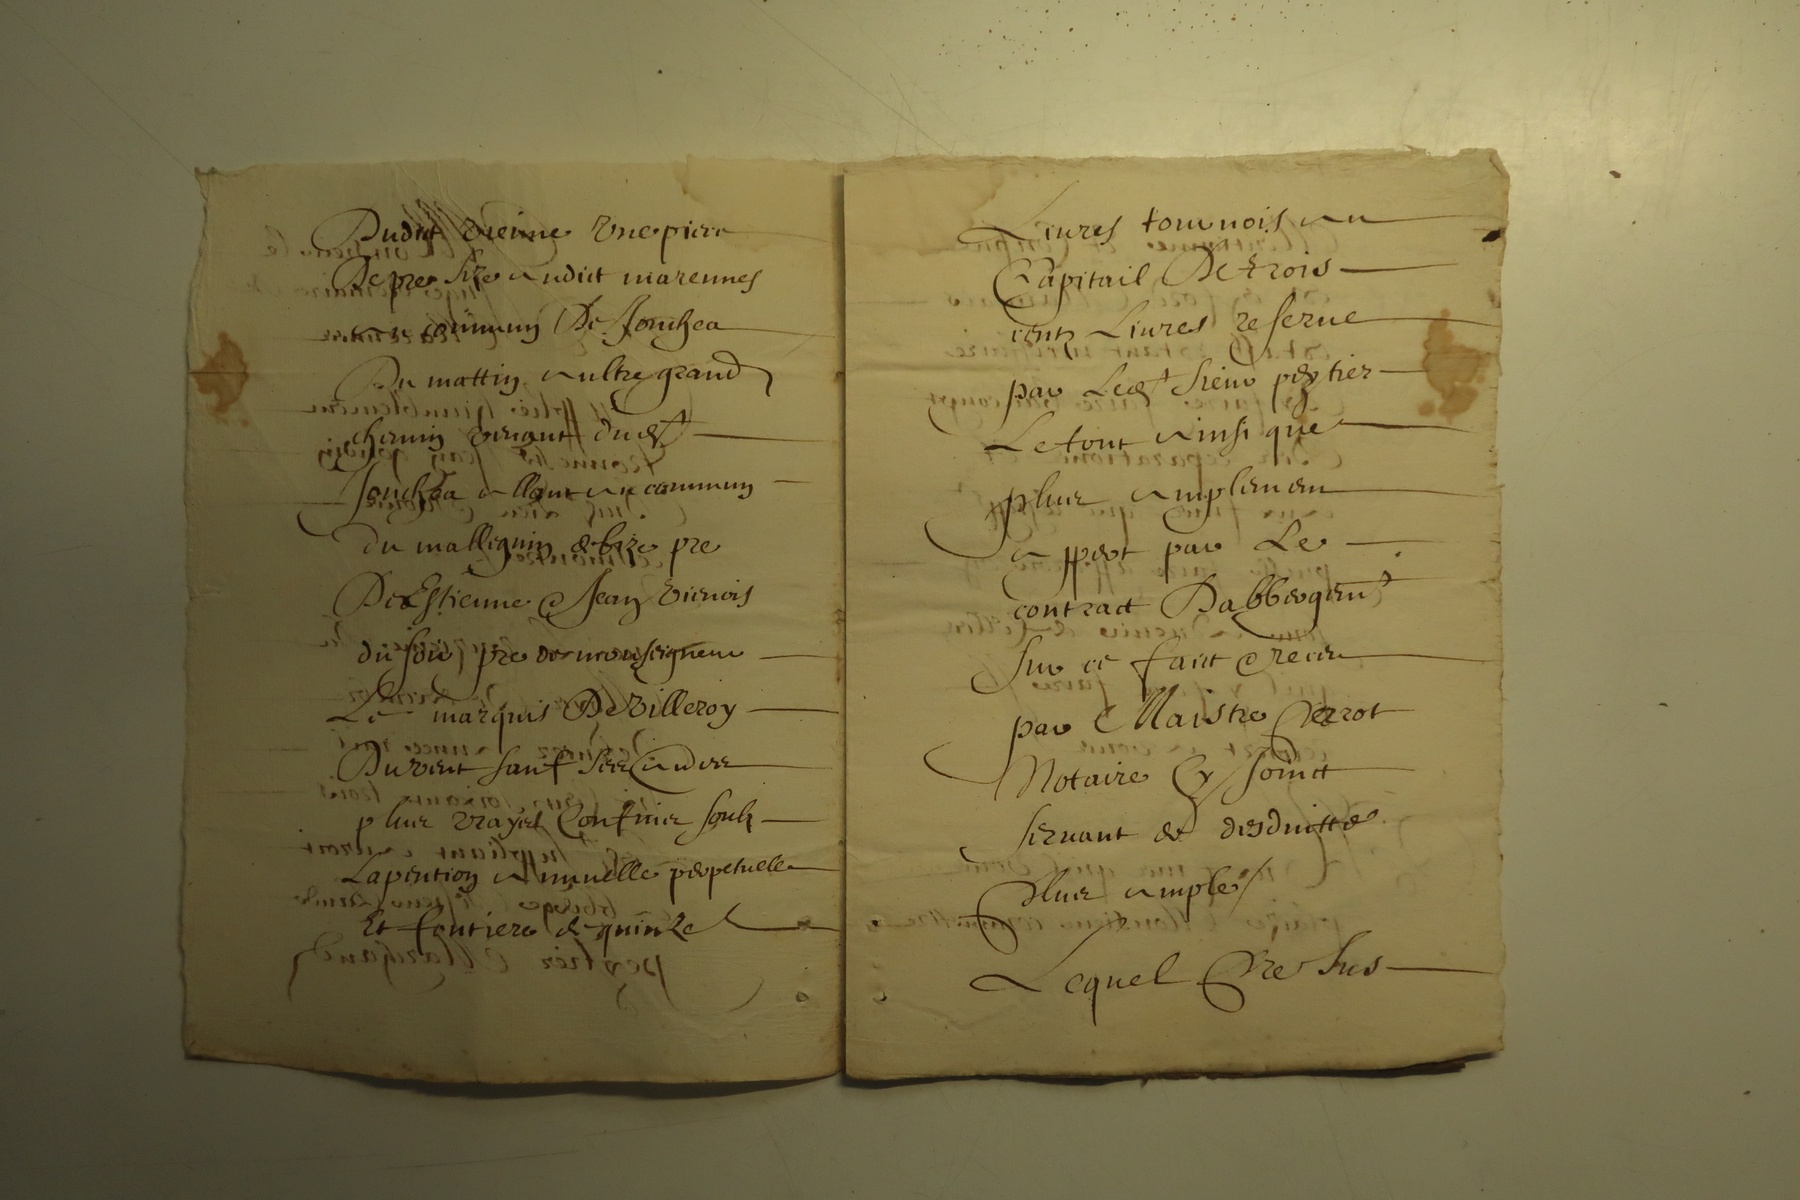 Dudict vienne Une piece
De pre size audict marennes
et au commung De Jonchea
Du mattin aultre grand
chemin venant dud
Jonchea allant au commung
du mallequin &bize pre
De Estienne & Jean vienois
du soir, pre de monseigneur
Le marquis De Villeroy
Du vent sauf ses audres
plus vrayes Confines soubz
La pention annuelle perpetuelle
Et fontiere de quinze
Livres tournois au
Capitail De trois
centz Livres reserve
par Led sieur peytier
Le tout ainsi que
plus amplemen
appert par Le
contract Dabbergemt
sur ce faict & receu
par Maistre Perrot
Notaire Cy joinct
servant de desduitte
plus ample/
Lequel Pre sus